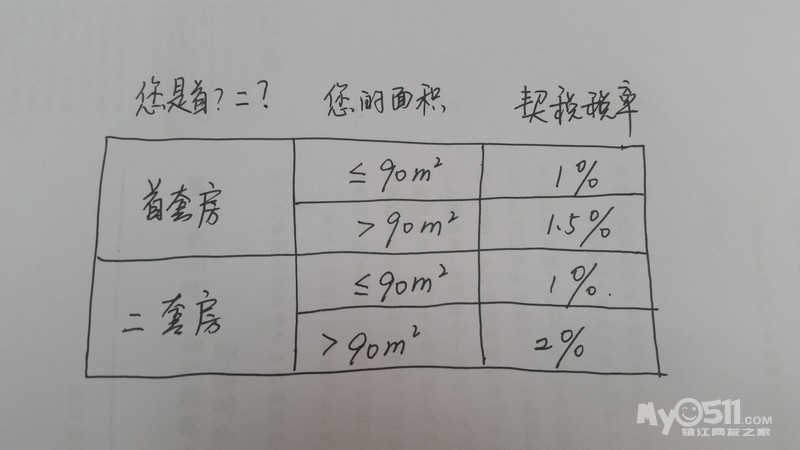 您是首?二? 您的面积 契税税率
首套房 ≤90m² 1%
>90m² 1.5%
二套房 ≤90m² 1%.
>90m² 2%
My0511.COM
镇江网友之家